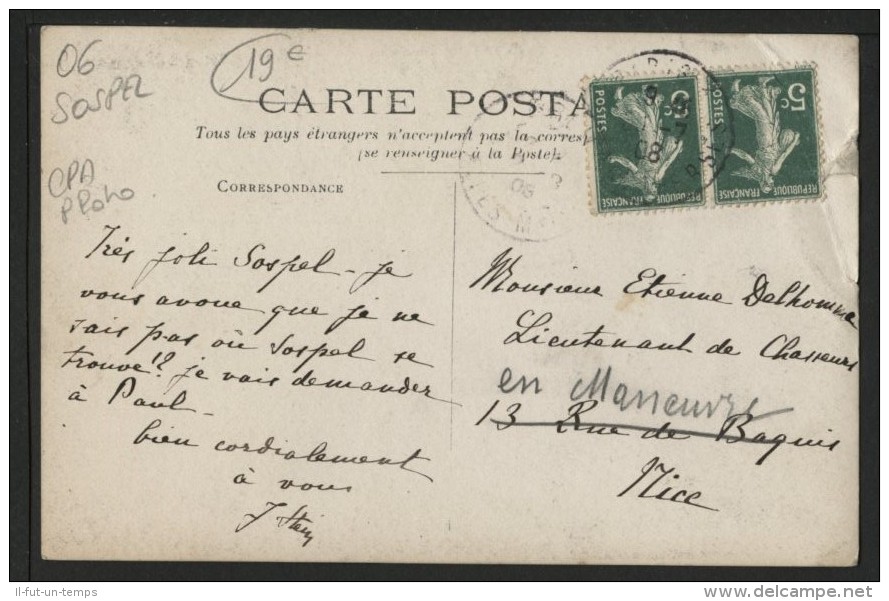 06
SOSPEL
19e
CPA
PPoho
CARTE POSTA
Tous les pays étrangers n'acceptent pas la corresp
(se renseigner à la Poste).
CORRESPONDANCE
5c
POSTES
REPUBLIQUE FRANÇAISE
5c
POSTES
REPUBLIQUE FRANÇAISE
Très joli Sospel - je
vous avoue que je ne
sais pas où Sospel se
trouve!? je vais demander
à Paul -
bien cordialement
à vous
Monsieur Etienne Delhomme
Lieutenant de Chasseurs
en Manœuvre
13 Rue de Baquis
Nice
Il-fut-un-temps
delcampe.net